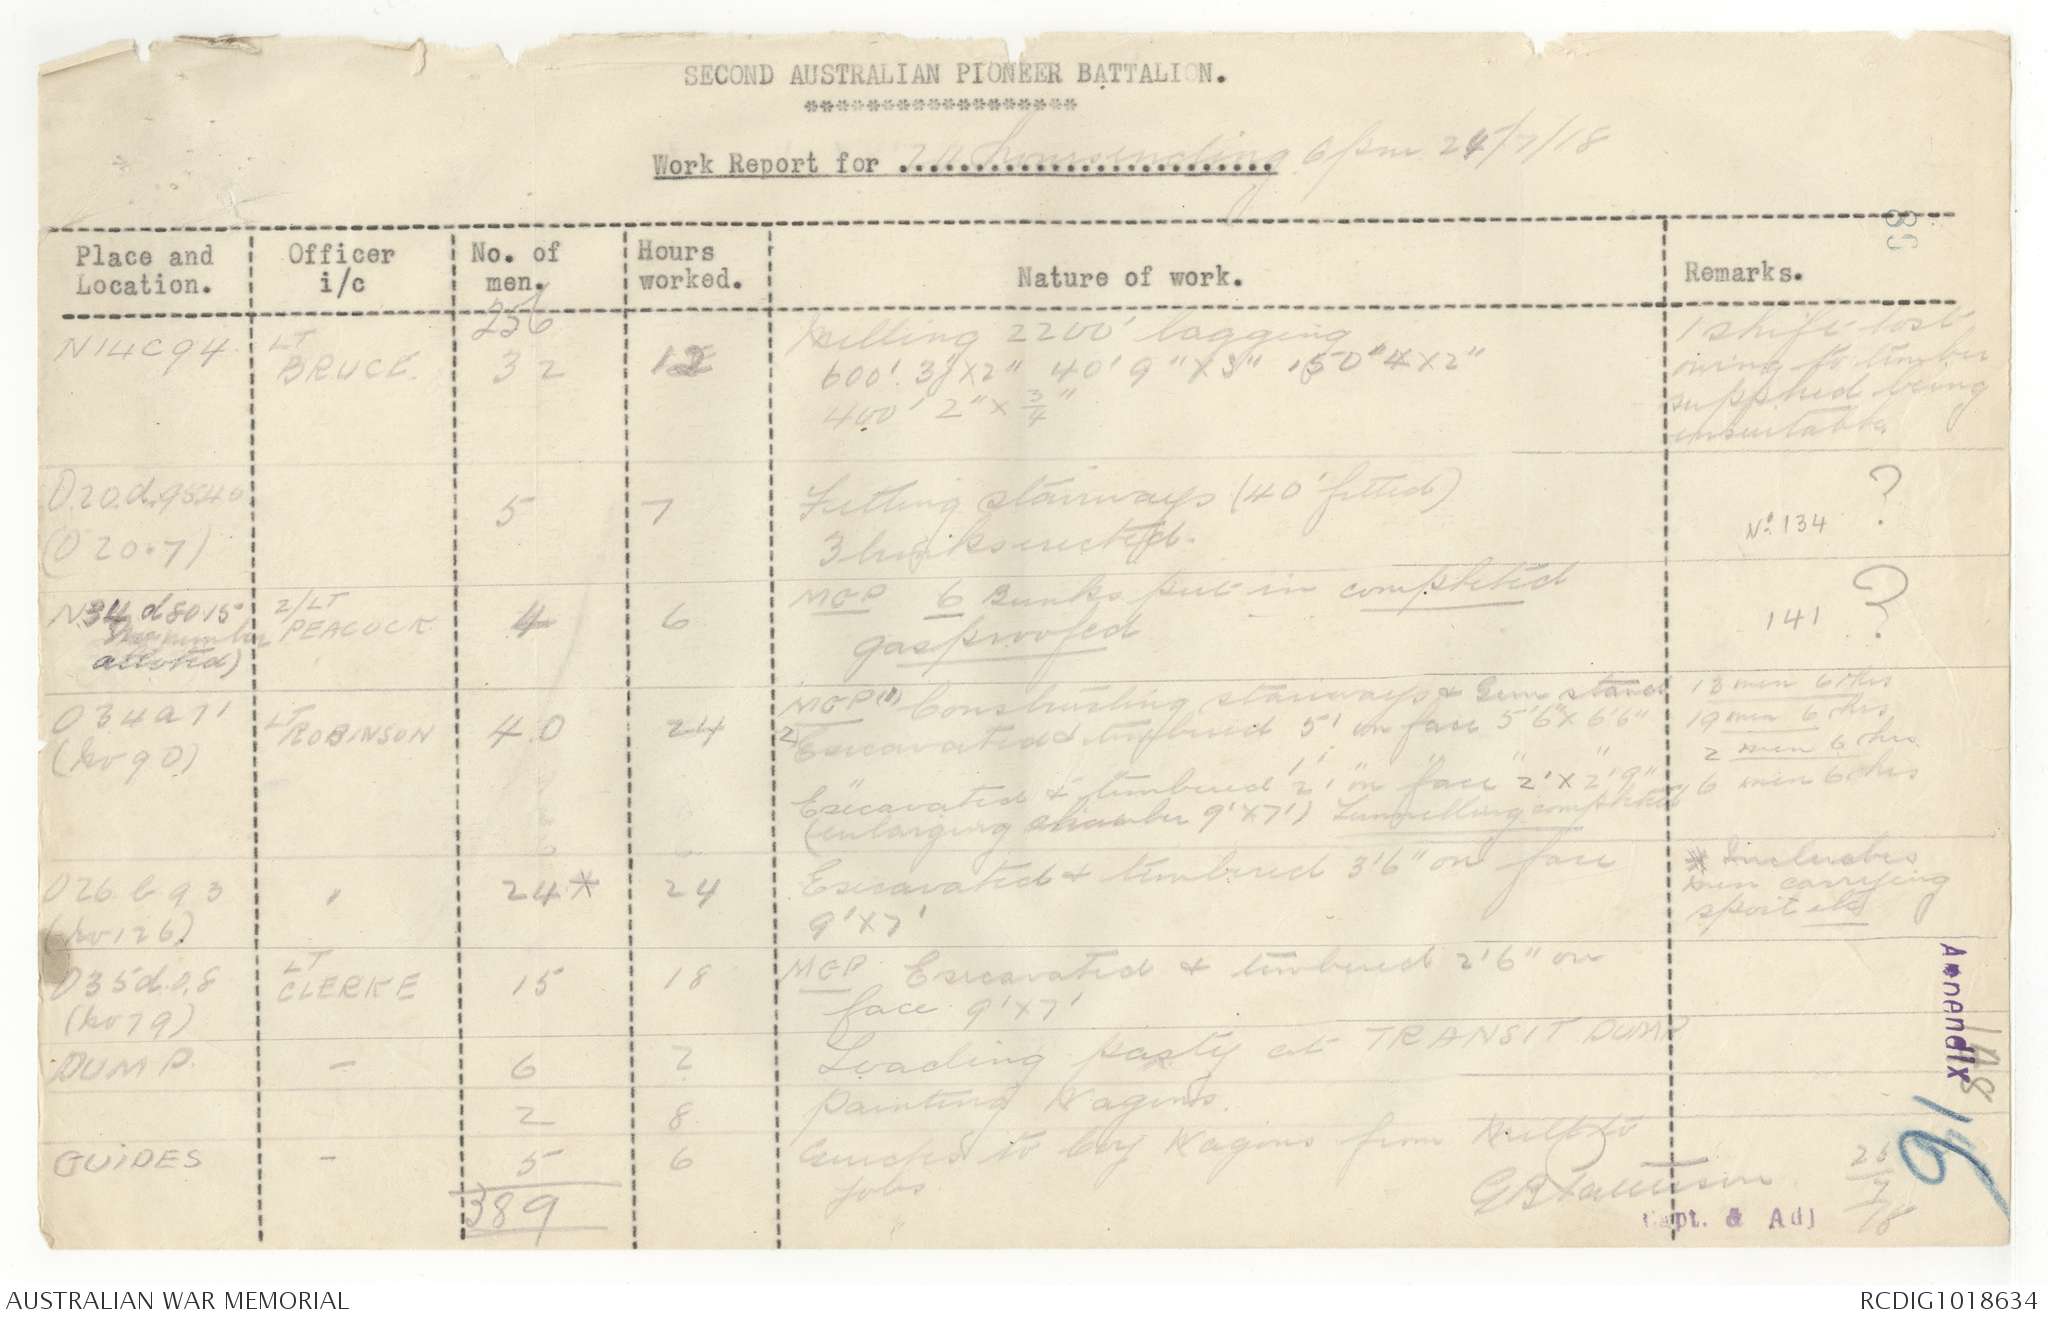 SECOND AUSTRALIAN PIONEER BATTALION.
******************
Work Report for 24 hours ending 6 pm 24/7/18
89
Place and Location.
Officer i/c
No. of men.
Hours worked.
Nature of work.
Remarks.
256
N14C94 LT BRUCE. 32 12 Milling 2200' lagging
600' 3"x2" 40' 9"x3" 150" 4x2"
400' 2"x 3/4"
1 shift lost
owing to timber
supplied being
unsuitable
O.20.d.9840
(O20.7) 5 7 Fitting stairways (40' fitted)
3 bunks erected. No. 134 ?
N34d8015
(No number
alloted) 2/LT PEACOCK 4 6 MGP 6 Bunks put in completed
gasproofed 141 ?
O34a71
(No 90) LT ROBINSON 40 24 MGP (1) Constructing stairways & Gun stand 13 men 6 hrs
2 Excavated & timbered 5' on face 5'6" x 6'6" 19 men 6 hrs
2 men 6 hrs
Excavated & timbered 2' on face 2' x 2'9" 6 men 6 hrs
(enlarging chamber 9'x7') Tunnelling completed
O26.b.93
(No 126) " 24* 24 Excavated & timbered 3'6" on face
9'x7'
* Includes
men carrying
spoil etc
O35d.0.8
(No 79) LT CLERKE 15 18 MGP Excavated & timbered 2'6" on
face 9'x7'
DUMP. - 6 2 Loading party at TRANSIT DUMP
2 8 Painting Wagons.
GUIDES - 5 6 Guides to by Wagons from Mill to
jobs.
389
Capt. & Adj
25/7/18
Appendix
148
91
AUSTRALIAN WAR MEMORIAL
RCDIG1018634